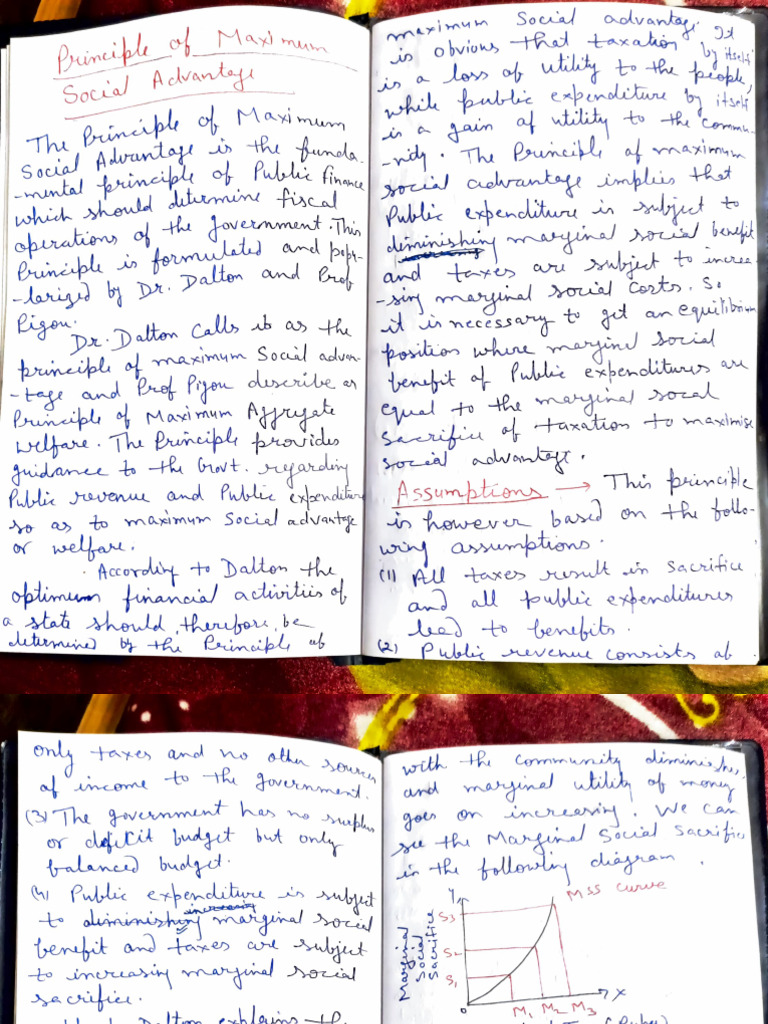 Principle of Maximum
Social Advantage
The Principle of Maximum
Social Advantage is the funda-
-mental principle of Public Finance
which should determine fiscal
operations of the government. This
Principle is formulated and popu-
-larized by Dr. Dalton and Prof
Pigou.
Dr. Dalton Calls it as the
principle of maximum Social advan-
-tage and Prof Pigou describe as
Principle of Maximum Aggregate
welfare. The Principle provides
guidance to the Govt. regarding
Public revenue and Public expenditure
so as to maximum Social advantage
or welfare.
According to Dalton the
optimum financial activitiis of
a state should, therefore, be
determined by the Principle of
maximum Social advantage. It
is obvious that taxation by itself
is a loss of utility to the people,
while public expenditure by itself
is a gain of utility to the commu-
-nity. The Principle of maximum
social advantage implies that
Public expenditure is subject to
diminishing marginal social benefit
and taxes are subject to increa
-sing marginal social costs. So
it is necessary to get an equilibrium
position where marginal social
benefit of Public expenditures are
equal to the marginal socal
Sacrifice of taxation to maximise
social advantage.
Assumptions → This principle
is however based on the follo-
wing assumptions.
(1) All taxes result in sacrifice
and all public expenditures
lead to benefits.
(2) Public revenue consists of
only taxes and no other sources
of income to the government.
(3) The government has no surplus
or deficit budget but only
balanced budget.
(4) Public expenditure is subject
increasing
to diminishing marginal social
benefit and taxes are subject
to increasing marginal social
sacrifice.
Dalton explains the
with the community diminishes,
and marginal utility of money
goes on increasing. We can
see the Marginal Social Sacrifice
in the following diagram.
Y
MSS curve
S3
S2
S1
Marginal
Social
Sacrifice
0
X
M1 M2 M3